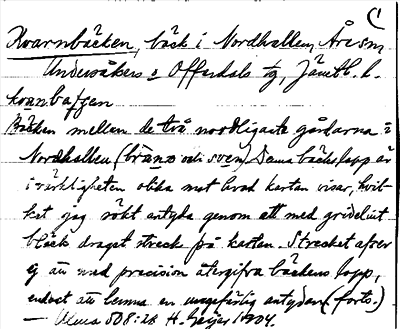 C
Kvarnbäcken, bäck i Nordhallen, Åre sn
Undersåkers o Offerdals tg, Jämtl. l.
Bäcken mellan de två nordligaste gårdarna i
Nordhallen (bräno och sven). Denna bäcks lopp är
i värkligheten olika mot hvad kartan visar, hvil-
ket jag sökt antyda genom ett med gridelint
bläck draget streck på kartan. Strecket afser
ej att med precision återgifva bäckens lopp,
endast att lemna en ungefärlig antydan (forts.)
— Ulma 508:28 H. Geijer 1904.